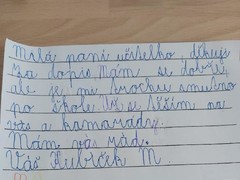 Milá paní učitelko, děkuji
za dopis. Mám se dobře,
ale je mi trochu smutno
po škole. Už se těším na
vás a kamarády.
Mám vás rád.
Váš Hubíček M.